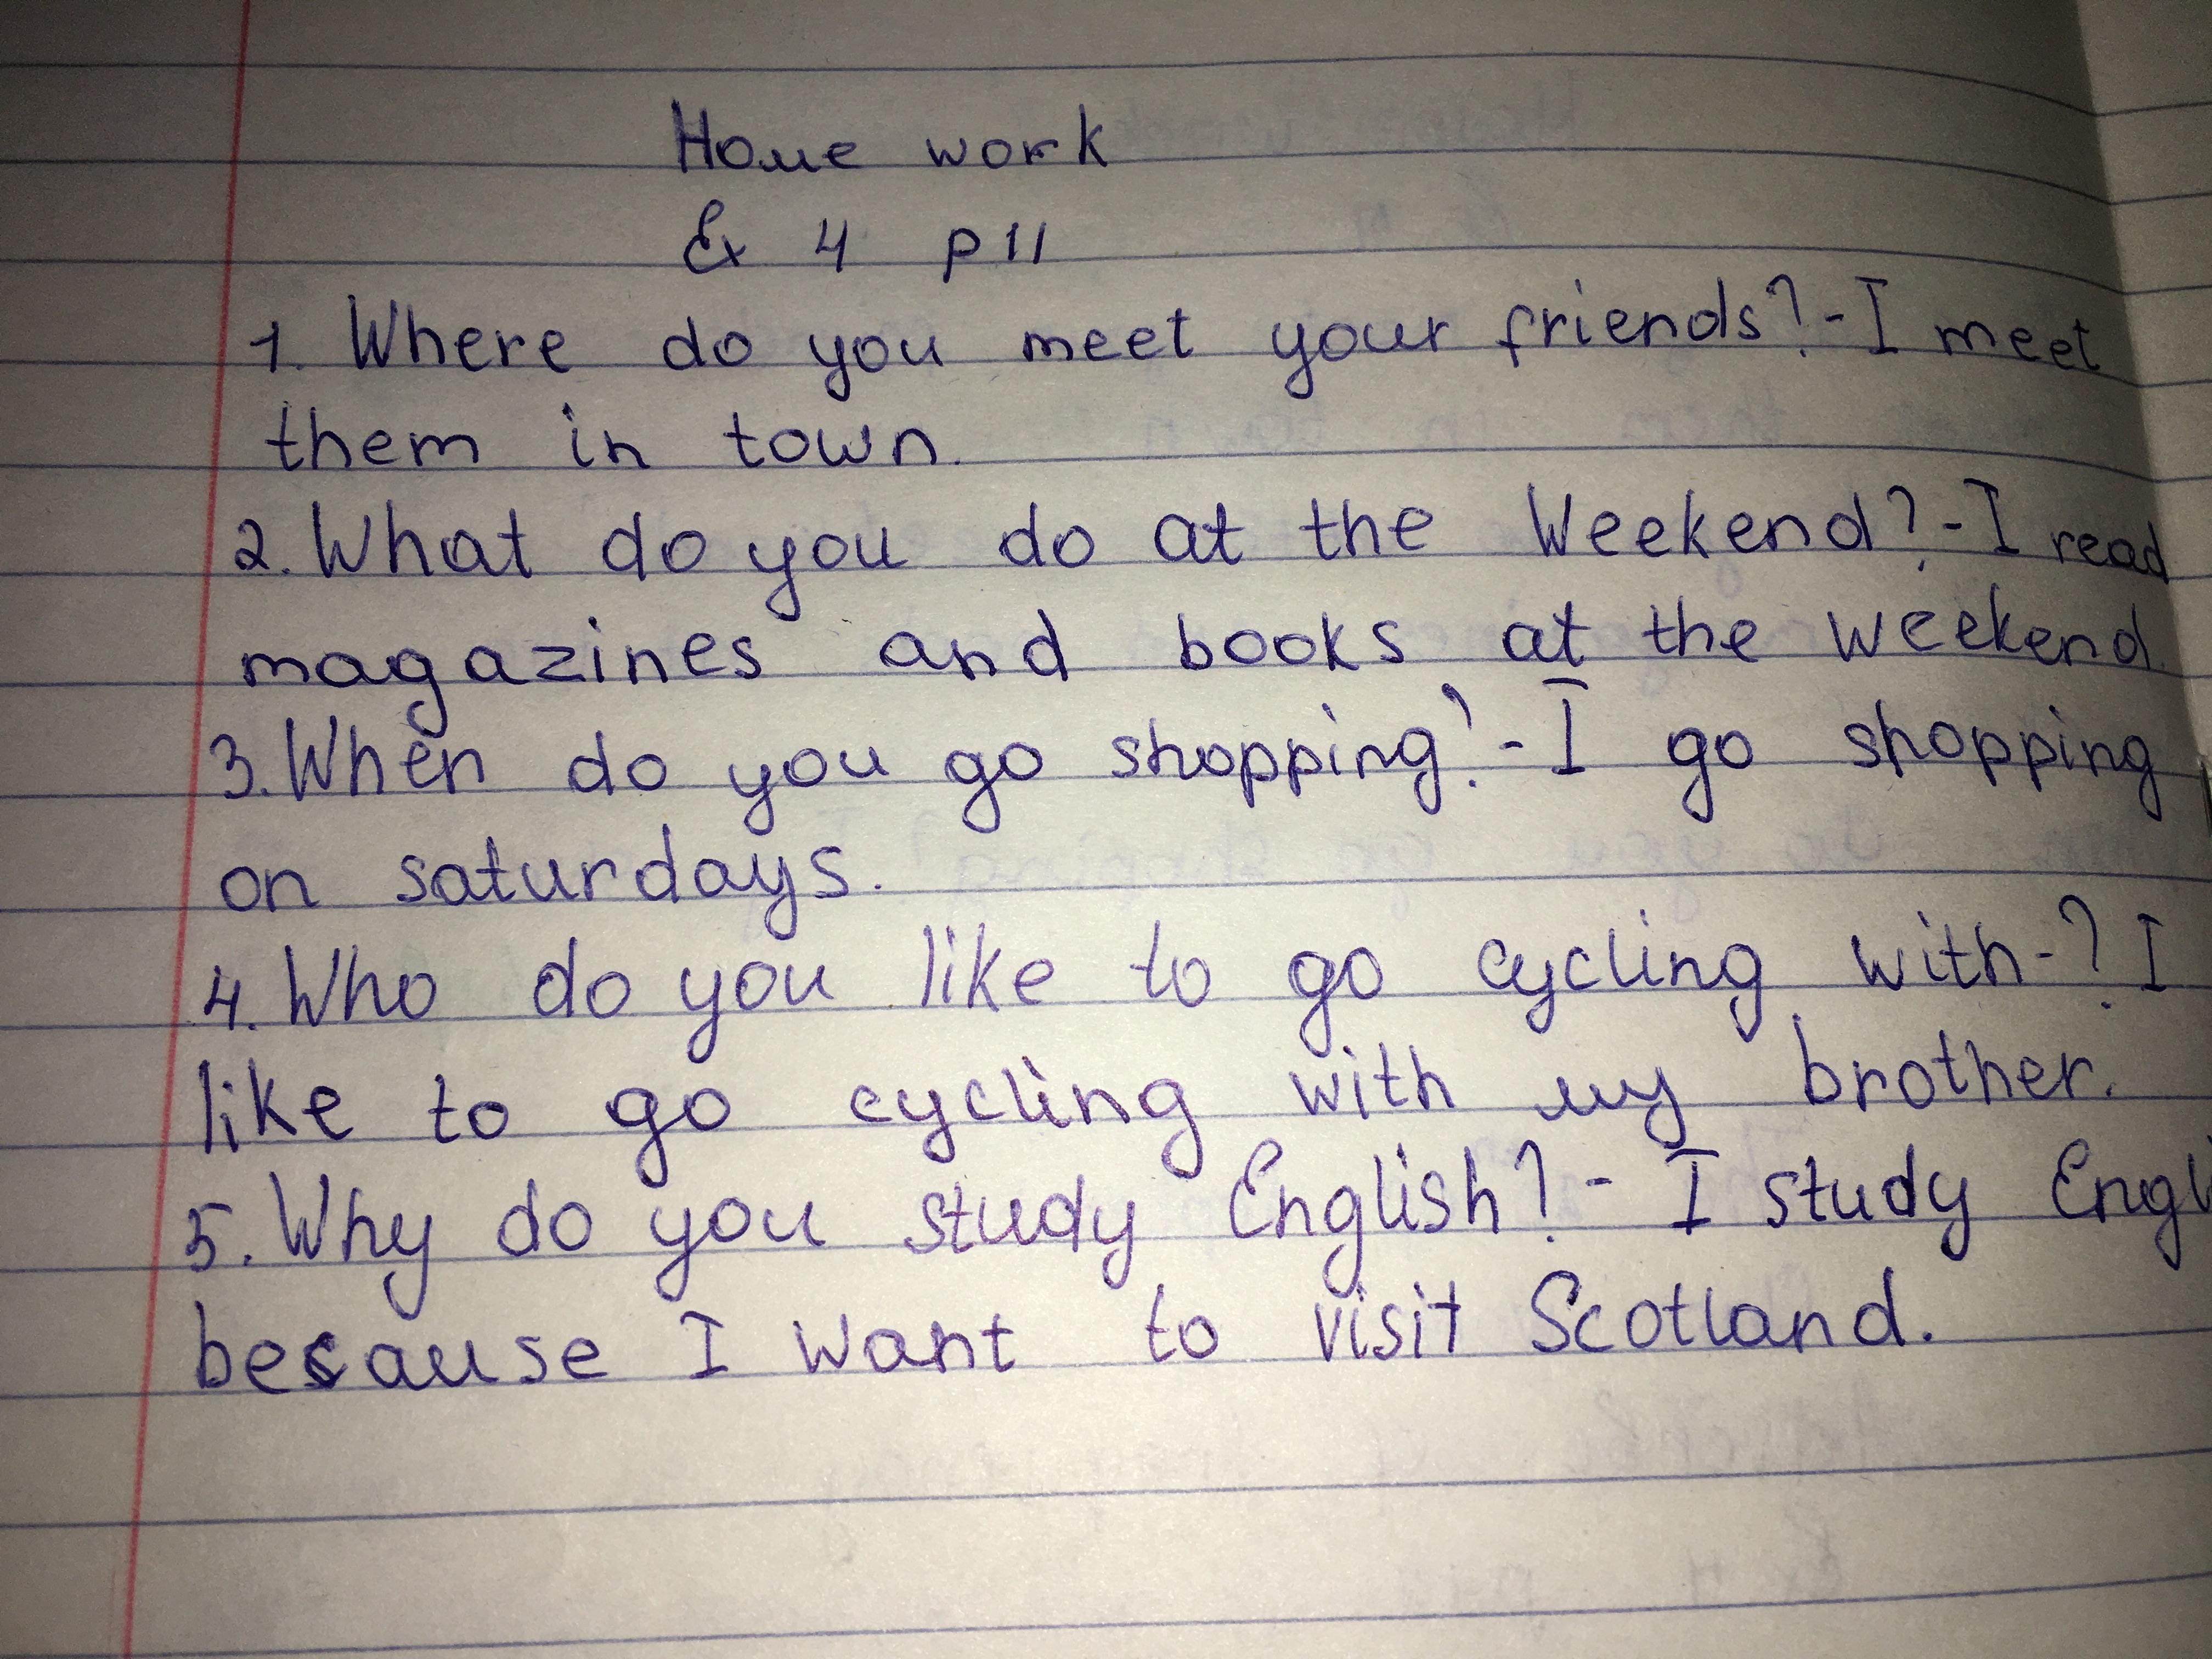 Home work
Ex 4 p 11
1. Where do you meet your friends? - I meet
them in town.
2. What do you do at the Weekend? - I read
magazines and books at the weekend.
3. When do you go shopping? - I go shopping
on saturdays.
4. Who do you like to go cycling with - ? I
like to go cycling with my brother.
5. Why do you study English? - I study Engl
because I want to visit Scotland.